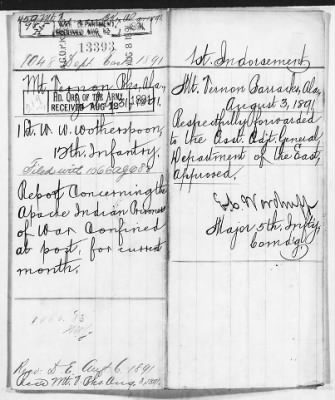 13393
1048 Dept. East 1891
Mt. Vernon Bks, Ala,
HD. QRS. OF THE ARMY,
RECEIVED AUG 1891
1 Lt. W. W. Wotherspoon,
12th Infantry.
Filed with
Report Concerning the
Apache Indian Prisoners
of War Confined
at post, for current
month.
Recd D. E. Aug 6 1891
Recd Mt. V. Bks Aug. 3, 1891.
1st. Indorsement
Mt. Vernon Barracks, Ala,
August 3, 1891
Respectfully forwarded
to the Asst. Adjt. General
Department of the East,
Approved.
Woodruff
Major 5th. Infty,
Comdg.